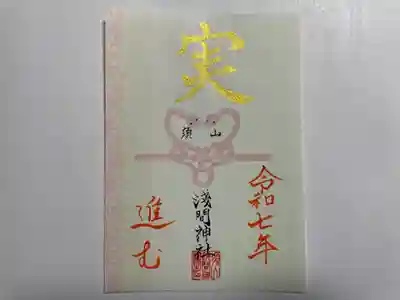 実
須山
浅間神社
令和七年
進む